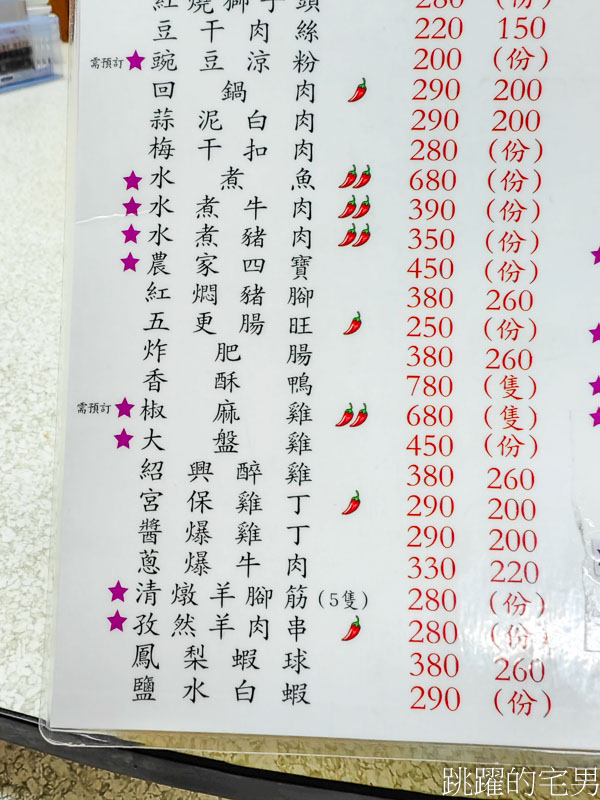 紅燒獅子頭 280 (份)
豆干肉絲 220 150
需預訂 ★豌豆涼粉 200 (份)
回鍋肉 290 200
蒜泥白肉 290 200
梅干扣肉 280 (份)
★水煮魚 680 (份)
★水煮牛肉 390 (份)
★水煮豬肉 350 (份)
★農家四寶 450 (份)
紅燜豬腳 380 260
五更腸旺 250 (份)
炸肥腸 380 260
香酥鴨 780 (隻)
需預訂 ★椒麻雞 680 (隻)
★大盤雞 450 (份)
紹興醉雞 380 260
宮保雞丁 290 200
醬爆雞丁 290 200
蔥爆牛肉 330 220
★清燉羊腳筋(5隻) 280 (份)
★孜然羊肉串 280 (份)
鳳梨蝦球 380 260
鹽水白蝦 290 (份)
跳躍的宅男